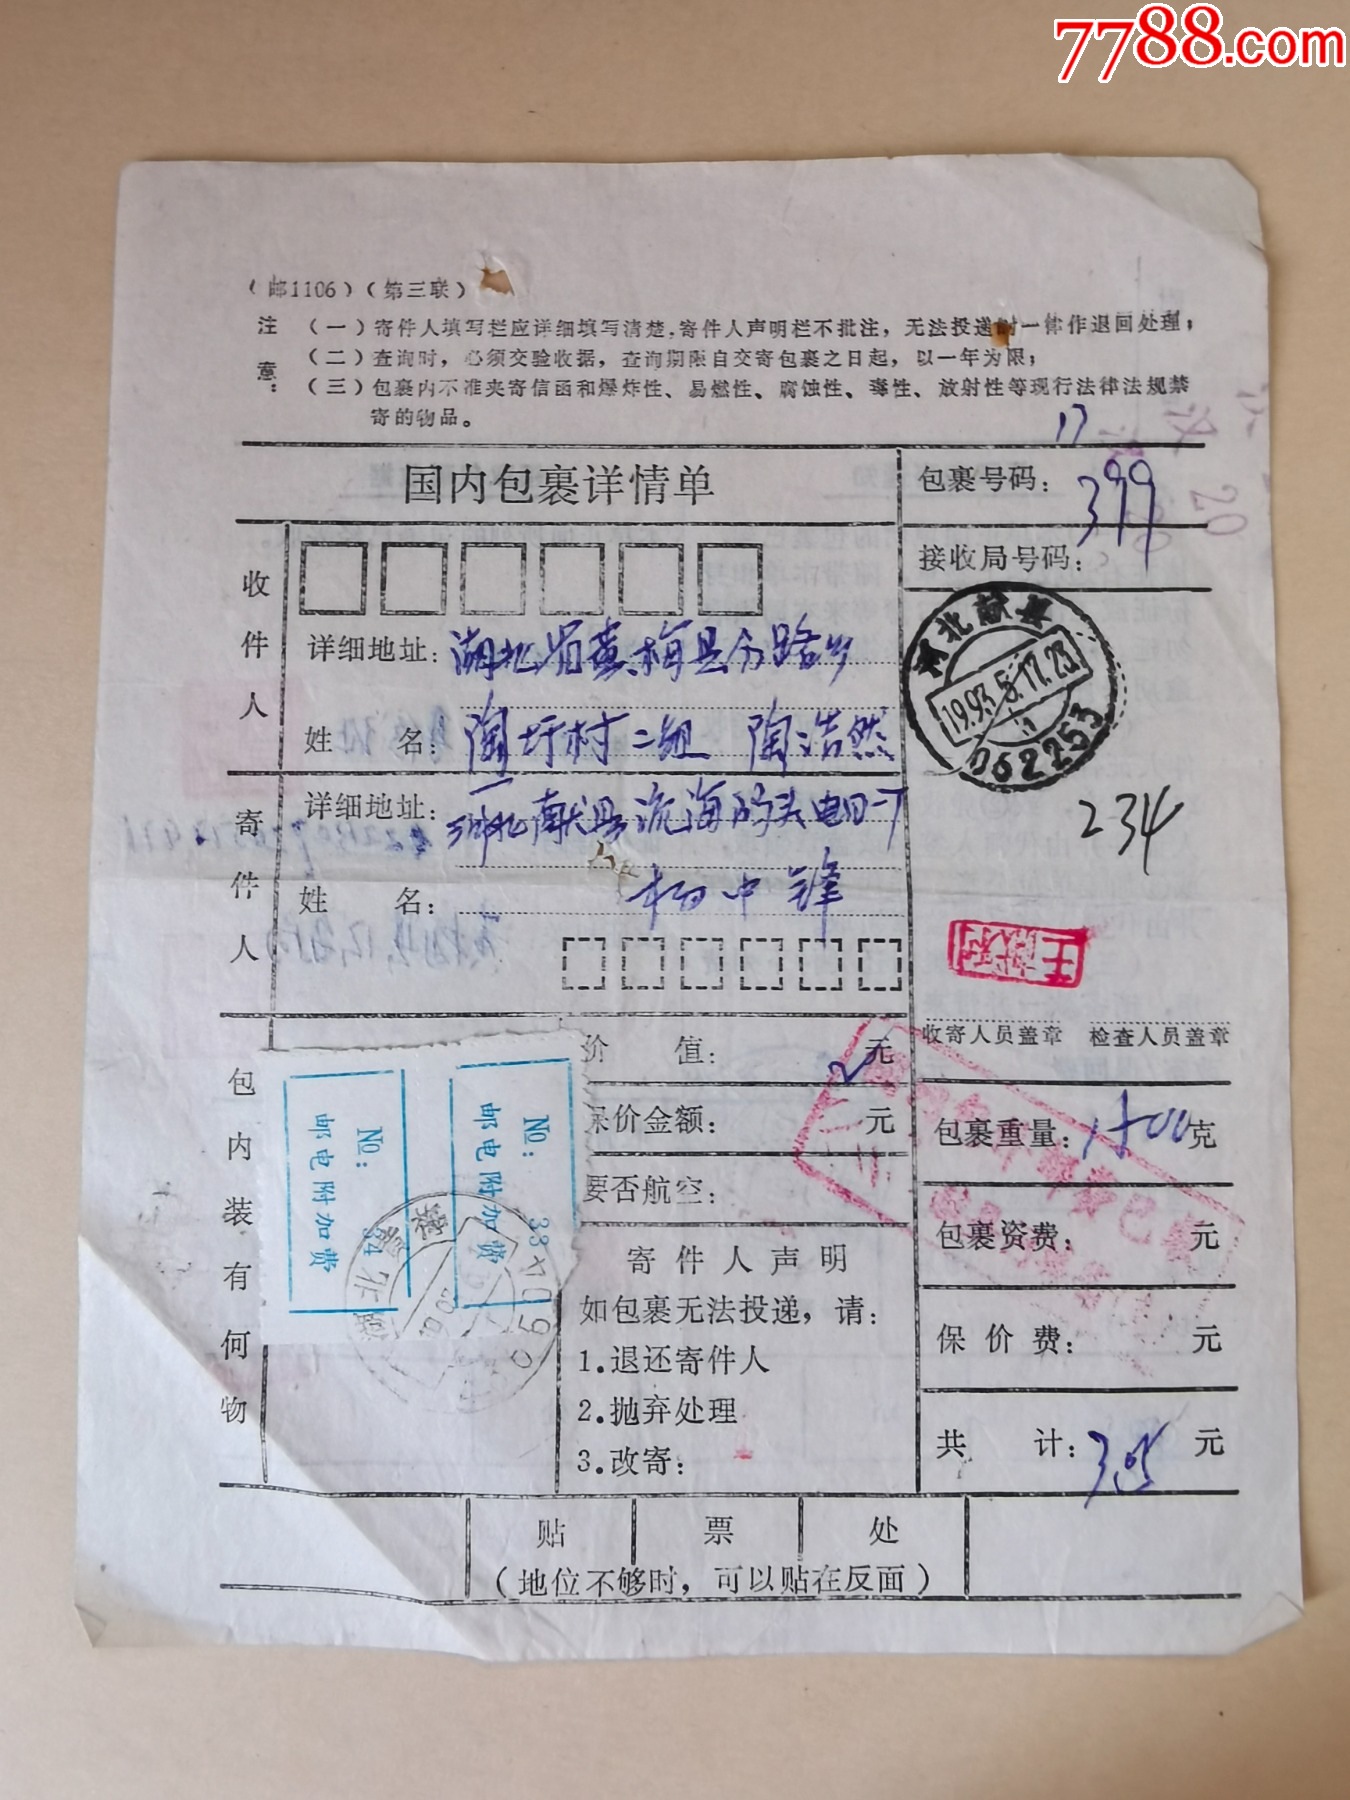 7788.com
(邮1106)(第三联)
注意:
(一)寄件人填写栏应详细填写清楚,寄件人声明栏不批注,无法投递时一律作退回处理;
(二)查询时,必须交验收据,查询期限自交寄包裹之日起,以一年为限;
(三)包裹内不准夹寄信函和爆炸性、易燃性、腐蚀性、毒性、放射性等现行法律法规禁
寄的物品。
17
国内包裹详情单
包裹号码: 399
接收局号码:
收件人
详细地址: 湖北省黄梅县分路乡
姓 名: 陶圩村二组 陶浩然
河北献县
1993.5.17.23
062253
寄件人
详细地址: 河北献县流海码头
姓 名: 杨中锋
234
收寄人员盖章 检查人员盖章
包内装有何物
价 值: 元
保价金额: 元
要否航空:
No: 33
邮电附加费
No: 34
邮电附加费
寄件人声明
如包裹无法投递,请:
1.退还寄件人
2.抛弃处理
3.改寄:
包裹重量: 1500克
包裹资费: 元
保价费: 元
共 计: 3.05 元
贴 票 处
(地位不够时,可以贴在反面)